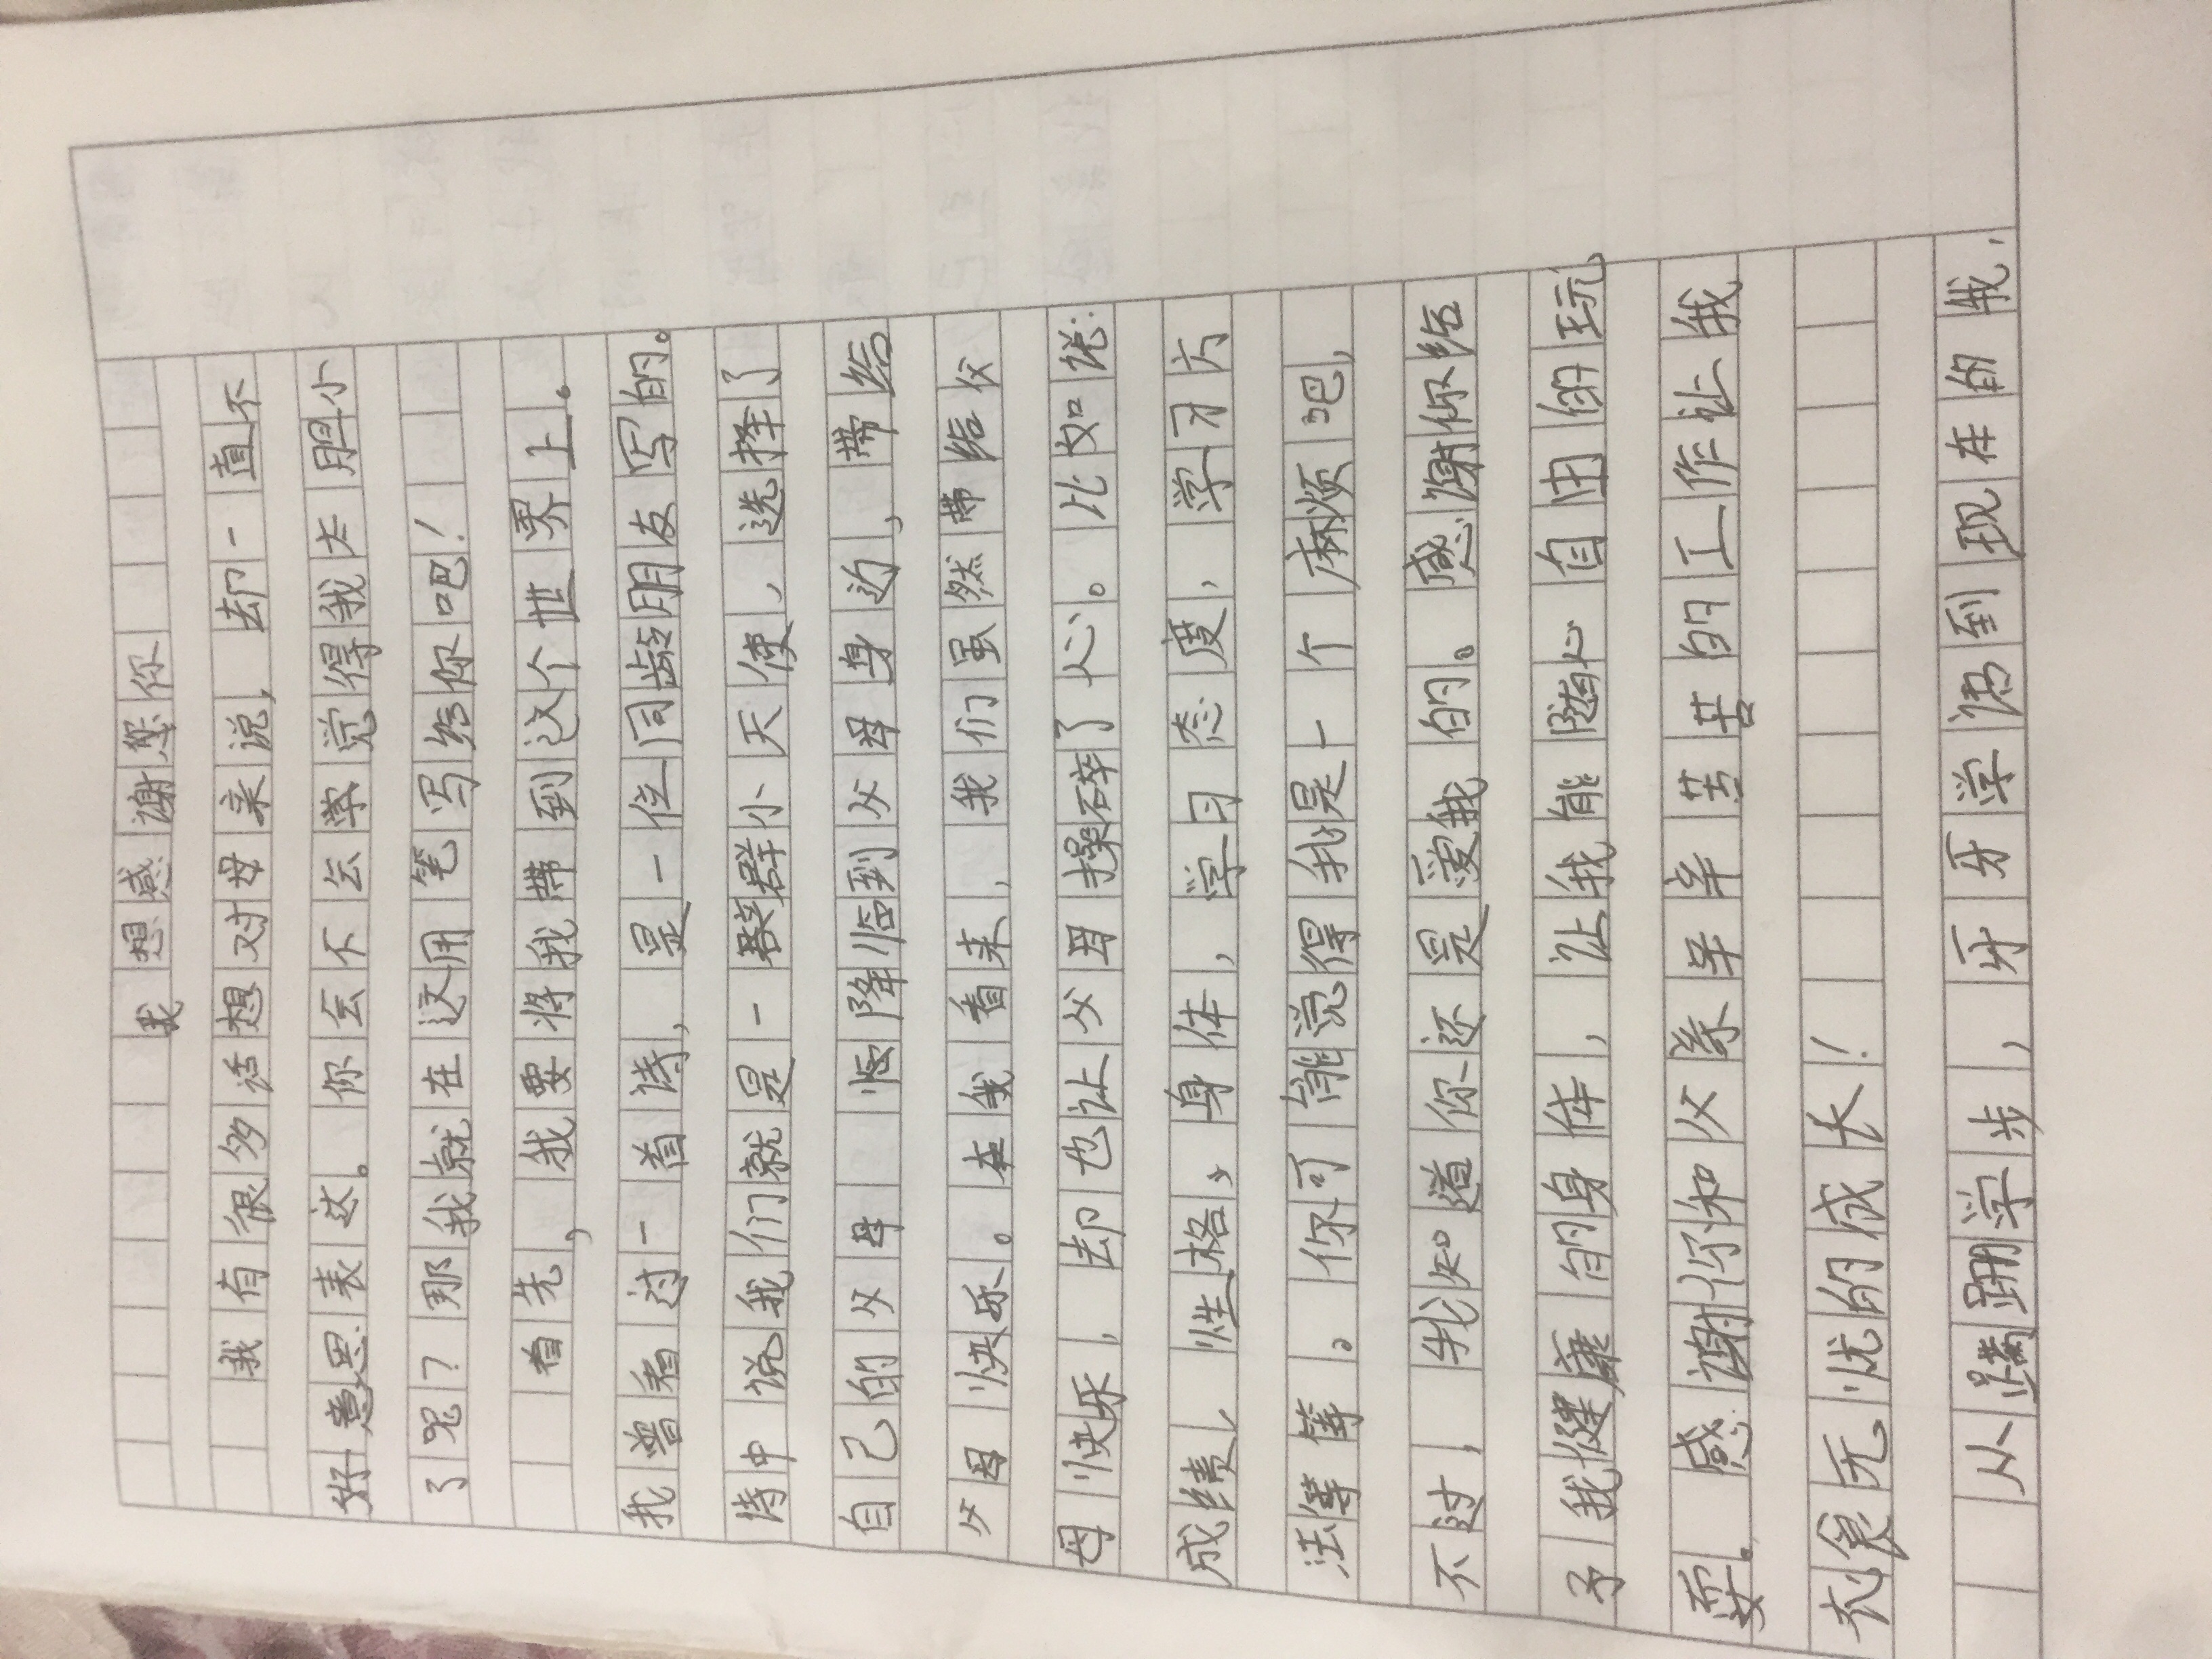 我想感谢您你
我有很多话想对母亲说，却一直不
好意思表达。你会不会学觉得我太胆小
了呢？那我就在这用笔写给你吧！
首先，我要将我带到这个世界上。
我曾看过一首诗，是一位同龄朋友写的。
诗中说我们就是一群群小天使，选择了
自己的父母 降临到父母身边，带给
父母快乐。在我看来，我们虽然带给父
母快乐，却也让父母操碎了心。比如说：
成绩、性格，身体，学习态度，学习方
法等等。你可能觉得我是一个麻烦吧，
不过，我知道你还是爱我的。感谢你给
予我健康的身体，让我能随心自由的玩
耍。感谢你和父亲辛辛苦苦的工作让我
衣食无忧的成长！
从蹒跚学步，牙牙学语到现在的我，